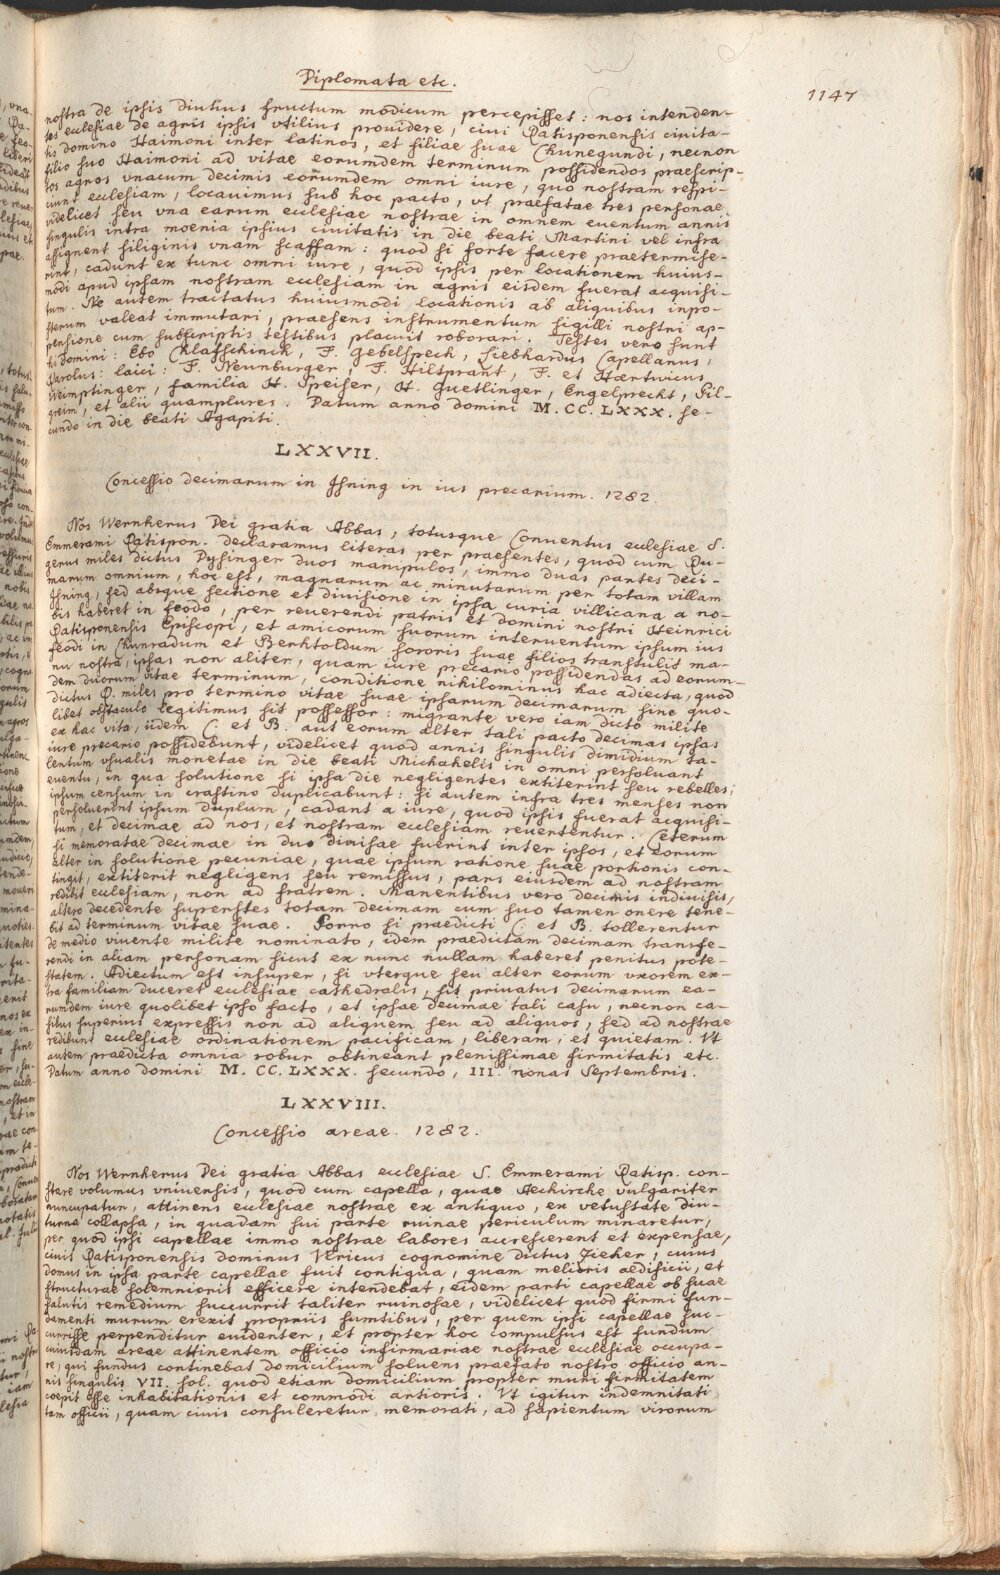 Diplomata etc.
1147
nostra de ipsis diutius fructum modicum percepisset: nos intenden-
tes ecclesiae de agris ipsis vtilius prouidere, ciui Ratisponensis ciuita-
tis domino Haimoni inter latinos, et filiae suae Chunegundi, necnon
filio suo Haimoni ad vitae eorumdem terminum possidendos praescrip-
tos agros vnacum decimis eorumdem omni iure, quo nostram respi-
ciunt ecclesiam, locauimus sub hoc pacto, vt praefatae tres personae
videlicet seu vna earum ecclesiae nostrae in omnem euentum annis
singulis intra moenia ipsius ciuitatis in die beati Martini vel infra
assignent siliginis vnam scaffam: quod si forte facere praetermise-
rint, cadunt ex tunc omni iure, quod ipsis per locationem huius-
modi apud ipsam nostram ecclesiam in agris eisdem fuerat acquisi-
tum. Ne autem tractatus huiusmodi locationis ab aliquibus inpo-
sterum valeat immutari, praesens instrumentum sigilli nostri ap-
pensione cum subscriptis testibus placuit roborari. Testes vero sunt
hi domini: Ebo Chlafschinch, F. Gebelspech, Liebhardus Capellanus,
Karolus: laici: F. Neunburger, F. Hiltprant, F. et Haertwicus
Weimptinger, familia H. Speiser, H. Guetlinger, Engelprecht, Pil-
greim, et alii quamplures. Datum anno domini M. CC. LXXX. se-
cundo in die beati Agapiti.
LXXVII.
Concessio decimarum in Ihning in ius precarium. 1282.
Nos Wernherus Dei gratia Abbas, totusque Conuentus ecclesiae S.
Emmerami Ratispon. declaramus literas per praesentes, quod cum Ru-
gerus miles dictus Pyssinger duos manipulos, immo duas partes deci-
marum omnium, hoc est, magnarum ac minutarum per totam villam
Ihning, sed absque sectione et diuisione in ipsa curia villicana a no-
bis haberet in feodo, per reuerendi patris et domini nostri Heinrici
Ratisponensis Episcopi, et amicorum suorum interuentum ipsum ius
feodi in Chunradum et Berhtoldum sororis suae filios transtulit ma-
nu nostra, ipsas non aliter, quam iure precario possidendas ad eorum-
dem duorum vitae terminum, conditione nihilominus hac adiecta, quod
dictus R. miles pro termino vitae suae ipsarum decimarum sine quo-
libet obstaculo legitimus sit possessor: migrante vero iam dicto milite
ex hac vita, iidem C. et B. aut eorum alter tali pacto decimas ipsas
iure precario possidebunt, videlicet quod annis singulis dimidium ta-
lentum vsualis monetae in die beati Michahelis in omni persoluant
euentu, in qua solutione si ipsa die negligentes extiterint seu rebelles;
ipsum censum in crastino duplicabunt: si autem infra tres menses non
persoluerint ipsum duplum, cadant a iure, quod ipsis fuerat acquisi-
tum, et decimae ad nos, et nostram ecclesiam reuertentur. Ceterum
si memoratae decimae in duo diuisae fuerint inter ipsos, et eorum
alter in solutione pecuniae, quae ipsum ratione suae portionis con-
tingit, extiterit negligens seu remissus, pars eiusdem ad nostram
redibit ecclesiam, non ad fratrem. Manentibus vero decimis indiuisis,
altero decedente superstes totam decimam cum suo tamen onere tene-
bit ad terminum vitae suae. Porro si praedicti C. et B. tollerentur
de medio viuente milite nominato, idem praedictam decimam transfe-
rendi in aliam personam sicut ex nunc nullam haberet penitus pote-
statem. Adiectum est insuper, si vterque seu alter eorum vxorem ex-
tra familiam duceret ecclesiae cathedralis, sit priuatus decimarum ea-
rumdem iure quolibet ipso facto, et ipsae decimae tali casu, necnon ca-
sibus superius expressis non ad aliquem seu ad aliquos, sed ad nostrae
redibunt ecclesiae ordinationem pacificam, liberam, et quietam. Vt
autem praedicta omnia robur obtineant plenissimae firmitatis etc.
Datum anno domini M. CC. LXXX. secundo, III. nonas Septembris.
LXXVIII.
Concessio areae. 1282.
Nos Wernherus Dei gratia Abbas ecclesiae S. Emmerami Ratisp. con-
stare volumus vniuersis, quod cum capella, quae Aechirche vulgariter
nuncupatur, attinens ecclesiae nostrae ex antiquo, ex vetustate diu-
turna collapsa, in quadam sui parte ruinae periculum minaretur,
per quod ipsi capellae immo nostrae labores accrescerent et expensae,
ciuis Ratisponensis dominus Vlricus cognomine dictus Zieher, cuius
domus in ipsa parte capellae fuit contigua, quam melioris aedificii, et
structurae solemnioris efficere intendebat, eidem parti capellae ob suae
salutis remedium succurrit taliter ruinosae, videlicet quod firmi fun-
damenti murum erexit propriis sumtibus, per quem ipsi capellae suc-
currisse perpenditur euidenter, et propter hoc compulsus est fundum
cuiusdam areae attinentem officio infirmariae nostrae ecclesiae occupa-
re, qui fundus continebat domicilium soluens praefato nostro officio an-
nis singulis VII. sol. quod etiam domicilium propter muri firmitatem
coepit esse inhabitationis et commodi artioris. Vt igitur indemnitati
tam officii, quam ciuis consuleretur memorati, ad sapientum virorum